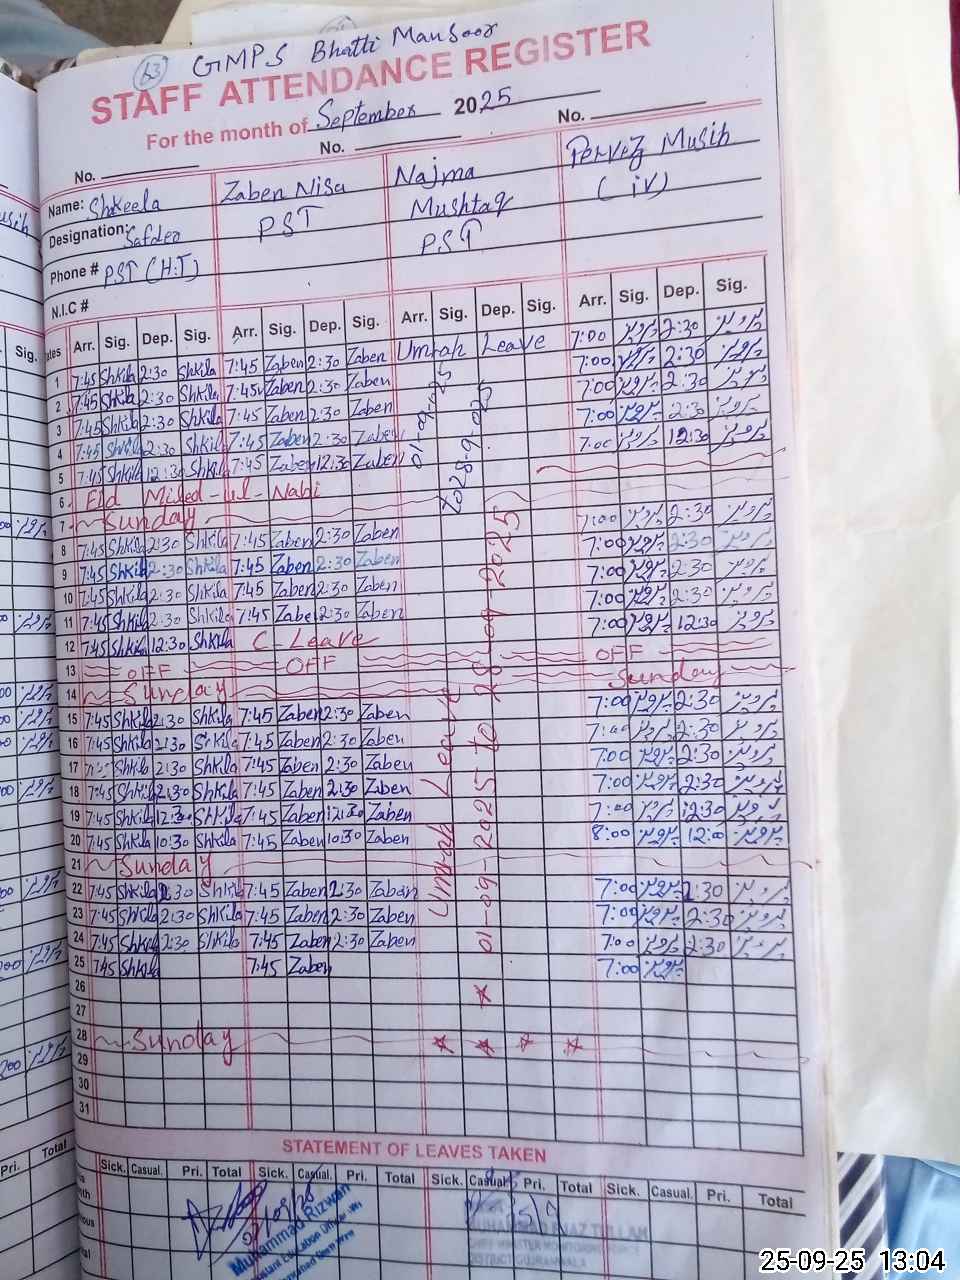 63 GMPS Bhatti Mansoor
STAFF ATTENDANCE REGISTER
For the month of September 2025
No. No. No.
Name: Shkeela Zaben Nisa Najma Perviz Musih
Designation: Safder PST Mushtaq (iv)
Phone # PST (H.T) PST
N.I.C #
Dates Arr. Sig. Dep. Sig. Arr. Sig. Dep. Sig. Arr. Sig. Dep. Sig. Arr. Sig. Dep. Sig.
1 7:45 Shkila 2:30 Shkila 7:45 Zaben 2:30 Zaben Umrah Leave 7:00 پرویز 2:30 پرویز
2 7:45 Shkila 2:30 Shkila 7:45 Zaben 2:30 Zaben 7:00 پرویز 2:30 پرویز
3 7:45 Shkila 2:30 Shkila 7:45 Zaben 2:30 Zaben 7:00 پرویز 2:30 پرویز
4 7:45 Shkila 2:30 Shkila 7:45 Zaben 2:30 Zaben 7:00 پرویز 2:30 پرویز
5 7:45 Shkila 12:30 Shkila 7:45 Zaben 12:30 Zaben 7:00 پرویز 12:30 پرویز
6 Eid Miled-ul-Nabi
7 Sunday
8 7:45 Shkila 2:30 Shkila 7:45 Zaben 2:30 Zaben 7:00 پرویز 2:30 پرویز
9 7:45 Shkila 2:30 Shkila 7:45 Zaben 2:30 Zaben 7:00 پرویز 2:30 پرویز
10 7:45 Shkila 2:30 Shkila 7:45 Zaben 2:30 Zaben 7:00 پرویز 2:30 پرویز
11 7:45 Shkila 2:30 Shkila 7:45 Zaben 2:30 Zaben 7:00 پرویز 2:30 پرویز
12 7:45 Shkila 12:30 Shkila C-Leave 7:00 پرویز 12:30 پرویز
13 OFF OFF OFF
14 Sunday Sunday
15 7:45 Shkila 2:30 Shkila 7:45 Zaben 2:30 Zaben 7:00 پرویز 2:30 پرویز
16 7:45 Shkila 2:30 Shkila 7:45 Zaben 2:30 Zaben 7:00 پرویز 2:30 پرویز
17 Shkila 2:30 Shkila 7:45 Zaben 2:30 Zaben 7:00 پرویز 2:30 پرویز
18 7:45 Shkila 2:30 Shkila 7:45 Zaben 2:30 Zaben 7:00 پرویز 2:30 پرویز
19 7:45 Shkila 12:30 Shkila 7:45 Zaben 12:30 Zaben 7:00 پرویز 12:30 پرویز
20 7:45 Shkila 10:30 Shkila 7:45 Zaben 10:30 Zaben 8:00 پرویز 12:00 پرویز
21 Sunday
22 7:45 Shkila 2:30 Shkila 7:45 Zaben 2:30 Zaben 7:00 پرویز 2:30 پرویز
23 7:45 Shkila 2:30 Shkila 7:45 Zaben 2:30 Zaben 7:00 پرویز 2:30 پرویز
24 7:45 Shkila 2:30 Shkila 7:45 Zaben 2:30 Zaben 7:00 پرویز 2:30 پرویز
25 7:45 Shkila 7:45 Zaben 7:00 پرویز
26
27
28 Sunday
29
30
31
Umrah Leave
01-09-2025 to 28-09-2025
STATEMENT OF LEAVES TAKEN
Sick. Casual. Pri. Total Sick. Casual. Pri. Total Sick. Casual. Pri. Total Sick. Casual. Pri. Total
Muhammad Rizwan
25-09-25 13:04